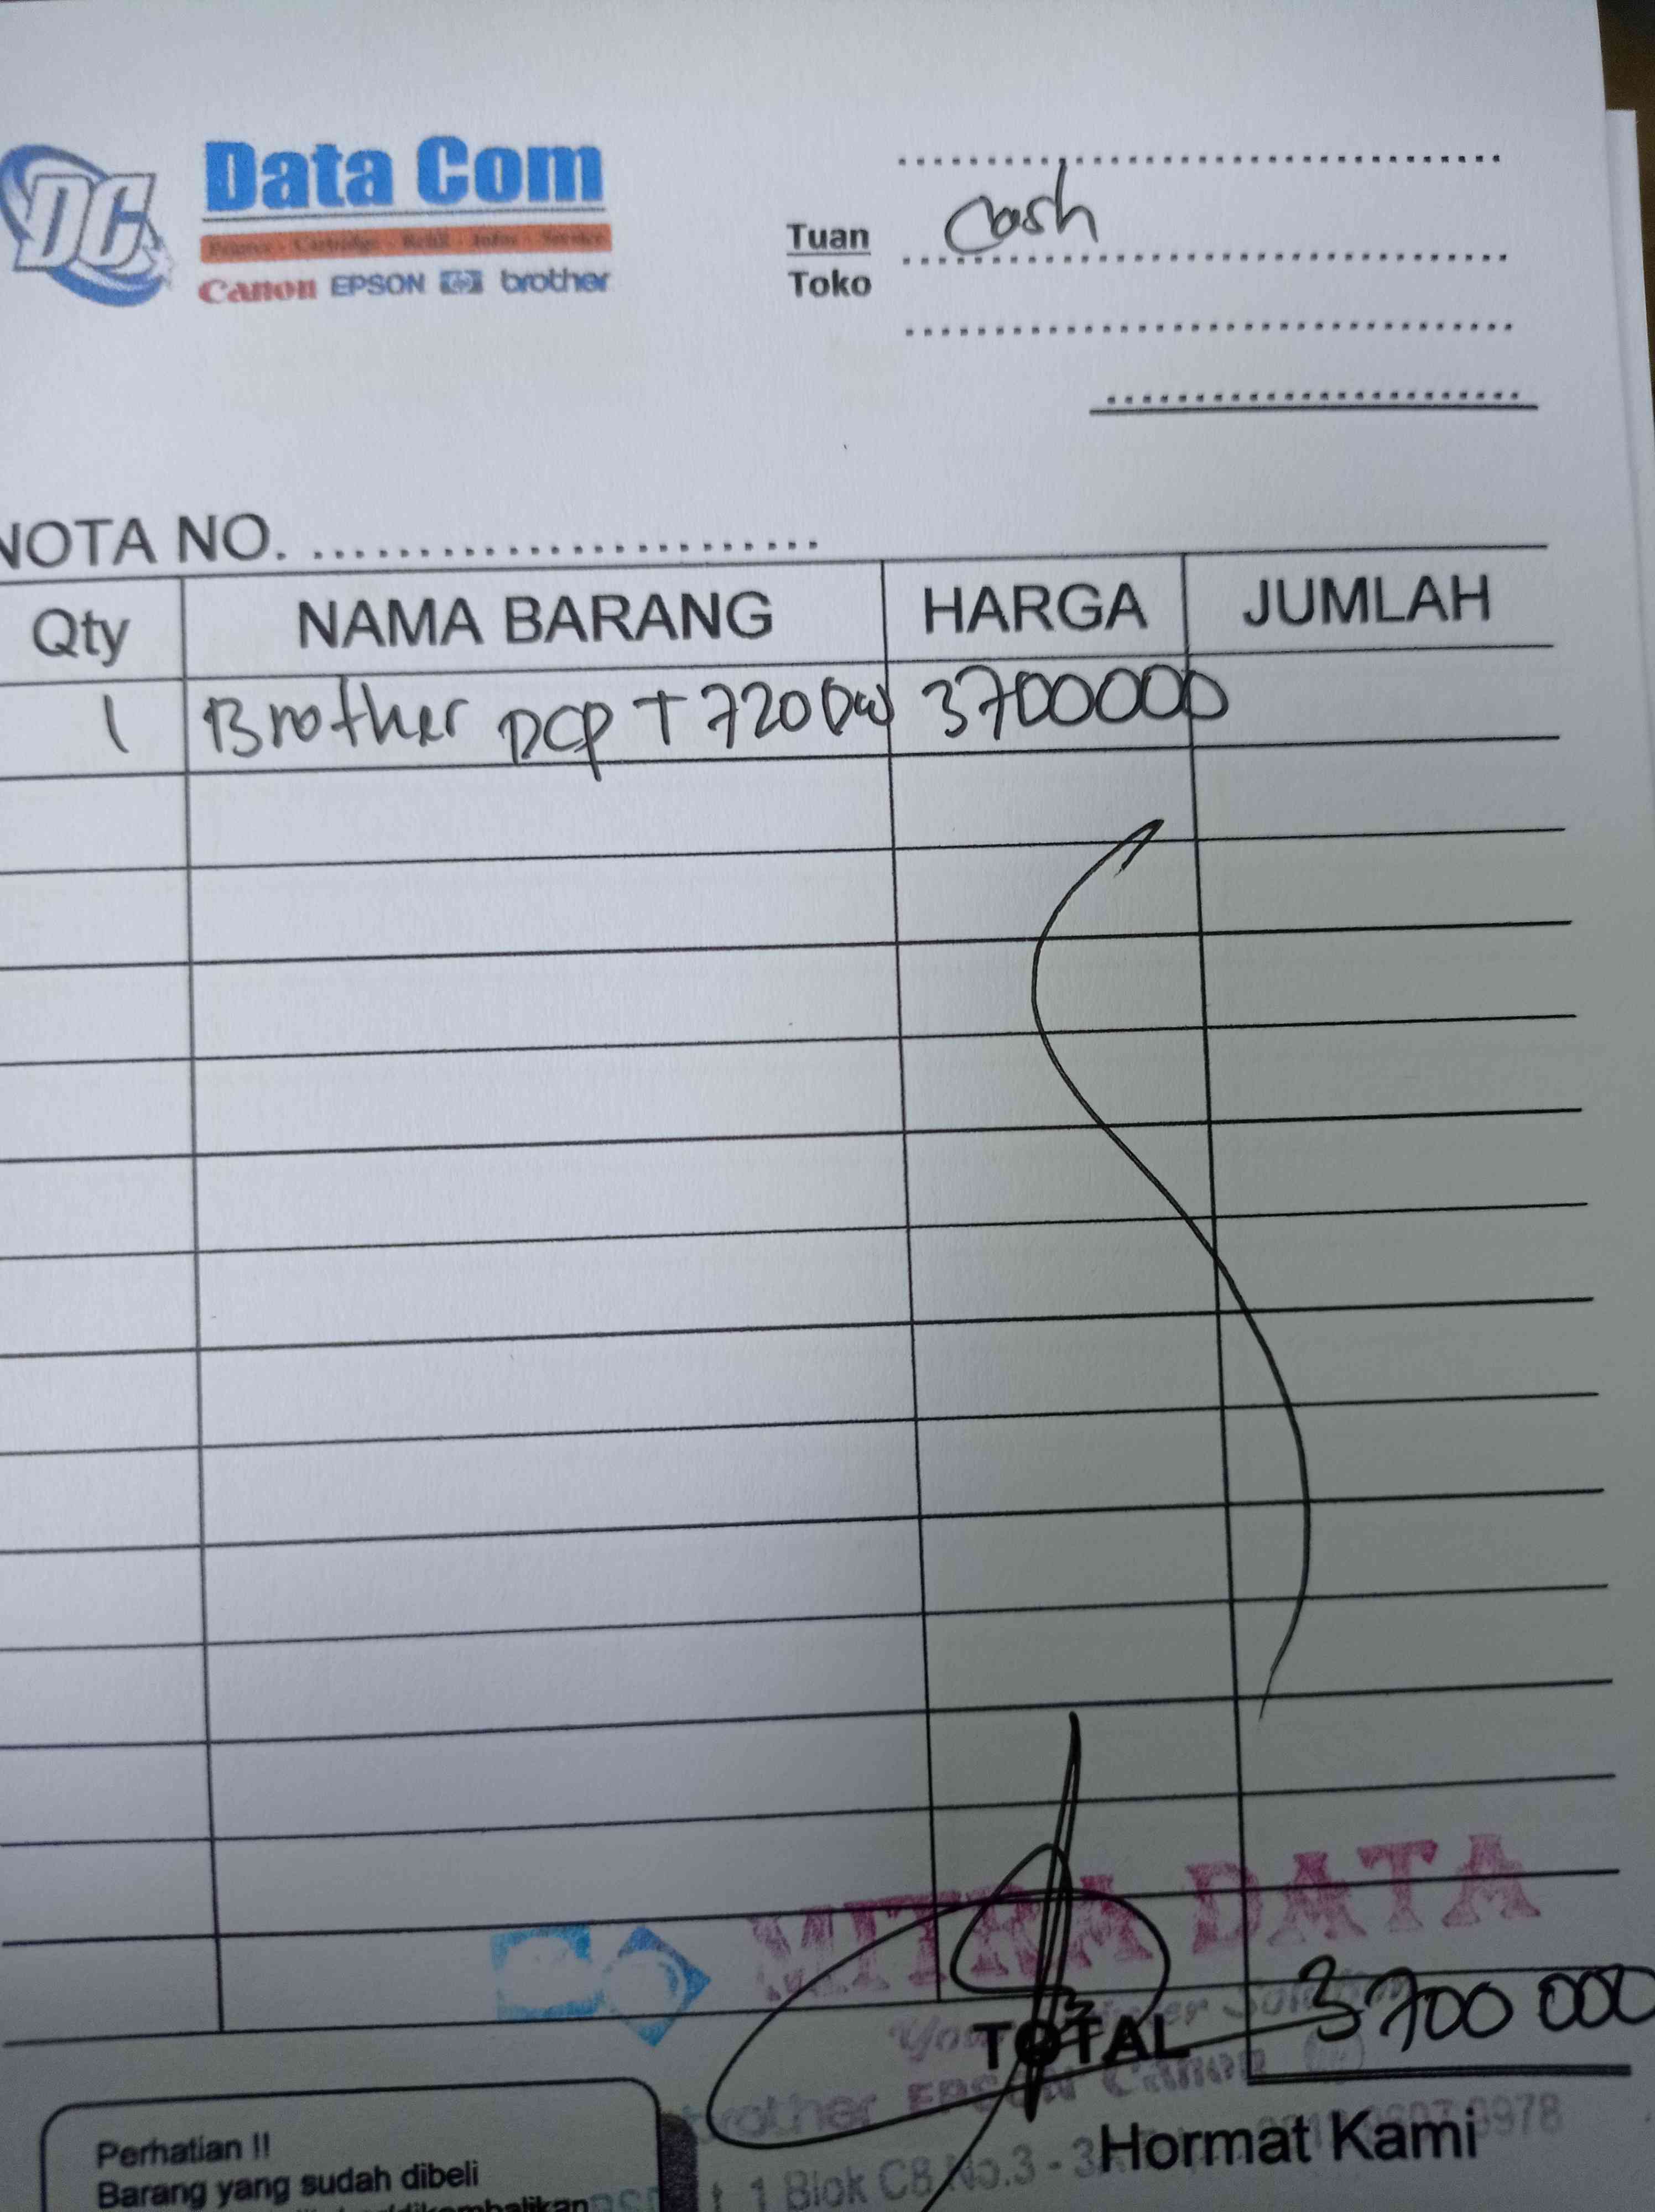 DC
Data Com
Printer - Cartridge - Refill - Infus - Service
Canon EPSON hp brother
Tuan Cash
Toko
NOTA NO.
Qty NAMA BARANG HARGA JUMLAH
1 Brother DCP T720DW 3700000
MITRA DATA
TOTAL 3700 000
brother EPSON Canon hp
Hormat Kami
Lt. 1 Blok C8 No.3 - 3A
Perhatian !!
Barang yang sudah dibeli